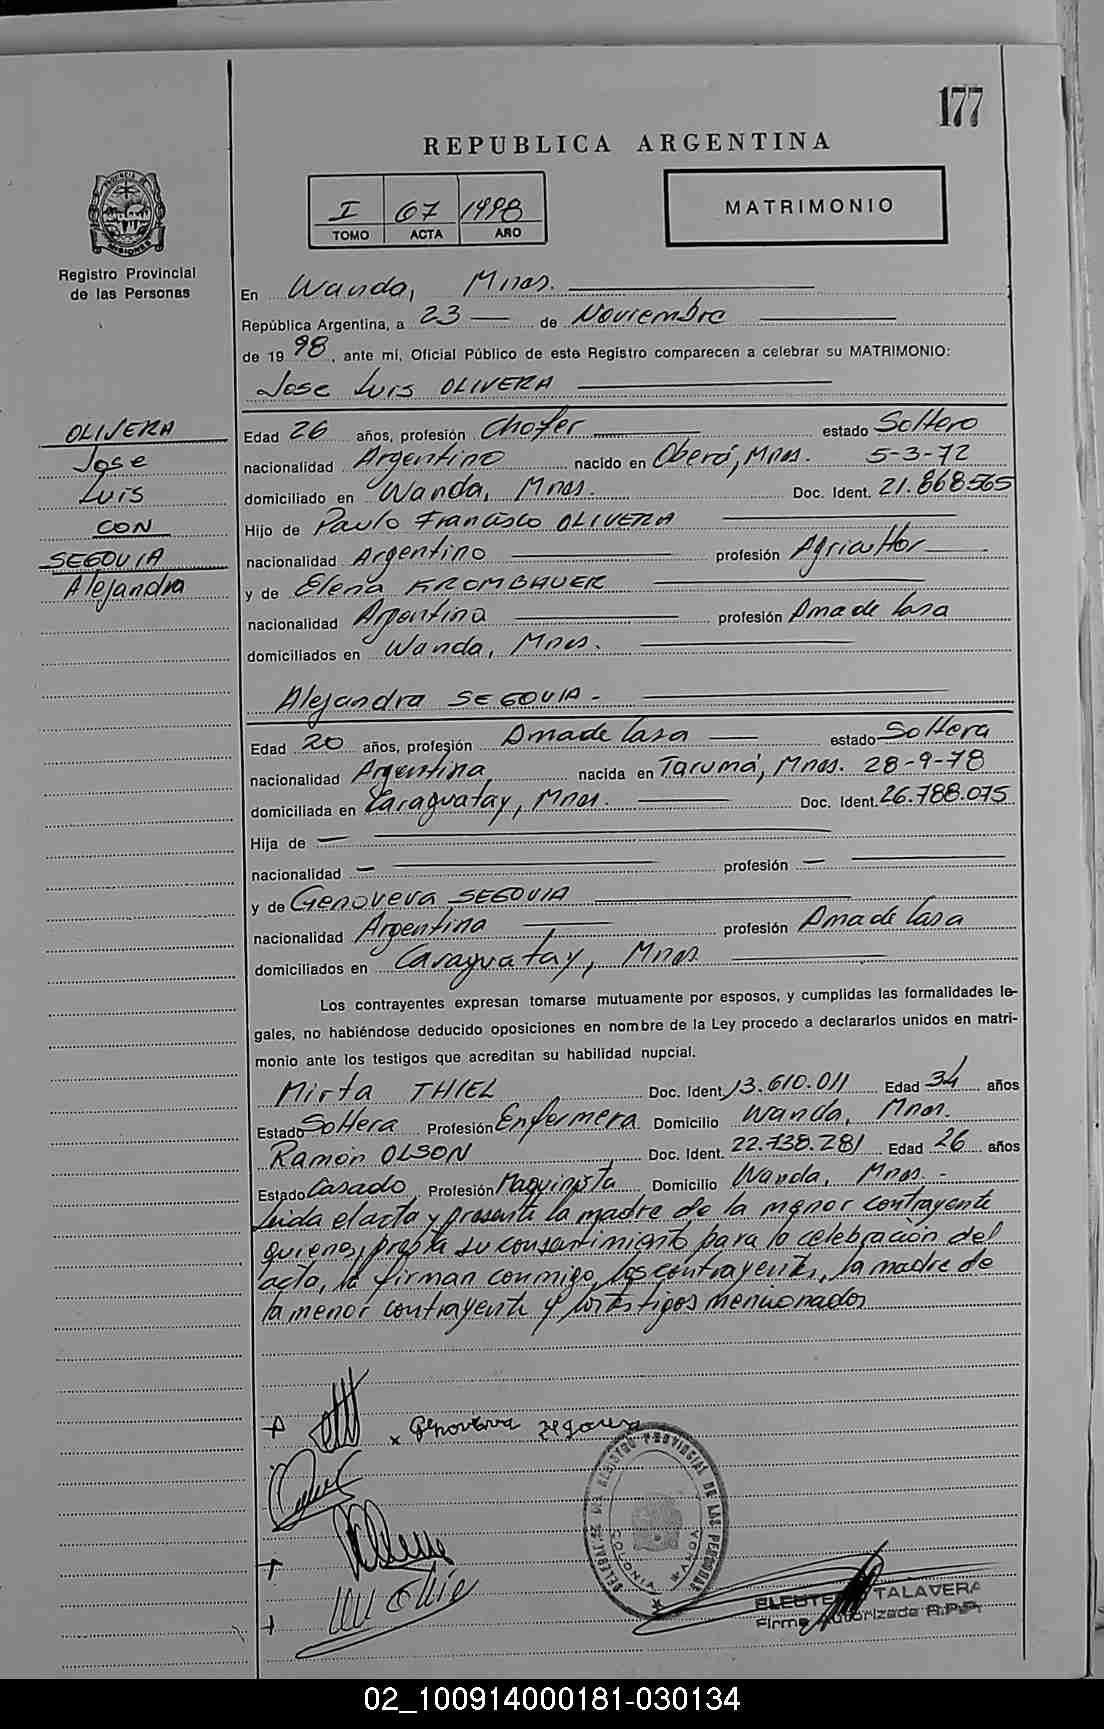 177
REPUBLICA ARGENTINA
I 67 1998
TOMO ACTA AÑO
MATRIMONIO
PROVINCIA DE MISIONES
Registro Provincial
de las Personas
En Wanda, Mnes.
República Argentina, a 23 de Noviembre
de 1998, ante mí, Oficial Público de este Registro comparecen a celebrar su MATRIMONIO:
Jose Luis OLIVERA
OLIVERA
Jose
Luis
CON
SEGOVIA
Alejandra
Edad 26 años, profesión Chofer estado Soltero
nacionalidad Argentino nacido en Oberá, Mnes. 5-3-72
domiciliado en Wanda, Mnes. Doc. Ident. 21.868.565
Hijo de Paulo Francisco OLIVERA
nacionalidad Argentino profesión Agricultor
y de Elena KROMBAUER
nacionalidad Argentina profesión Ama de Casa
domiciliados en Wanda, Mnes.
Alejandra SEGOVIA -
Edad 20 años, profesión Ama de Casa estado Soltera
nacionalidad Argentina, nacida en Tarumá, Mnes. 28-9-78
domiciliada en Caraguatay, Mnes. Doc. Ident. 26.788.075
Hija de —
nacionalidad — profesión —
y de Genoveva SEGOVIA
nacionalidad Argentina profesión Ama de Casa
domiciliados en Caraguatay, Mnes
Los contrayentes expresan tomarse mutuamente por esposos, y cumplidas las formalidades le-
gales, no habiéndose deducido oposiciones en nombre de la Ley procedo a declararlos unidos en matri-
monio ante los testigos que acreditan su habilidad nupcial.
Mirta THIEL Doc. Ident. 13.610.011 Edad 34 años
Estado Soltera Profesión Enfermera Domicilio Wanda, Mnes.
Ramón OLSON Doc. Ident. 22.738.281 Edad 26 años
Estado Casado Profesión Maquinista Domicilio Wanda, Mnes. -
Leida el acta y presente la madre de la menor contrayente
quienes, presta su consentimiento para la celebración del
acta, la firman conmigo, los contrayentes, la madre de
la menor contrayente y los testigos mencionados
x Genoveva Segovia
REGISTRO PROVINCIAL DE LAS PERSONAS
COLONIA WANDA
TALAVERA
Firma Autorizada R.P.P.
02_100914000181-030134